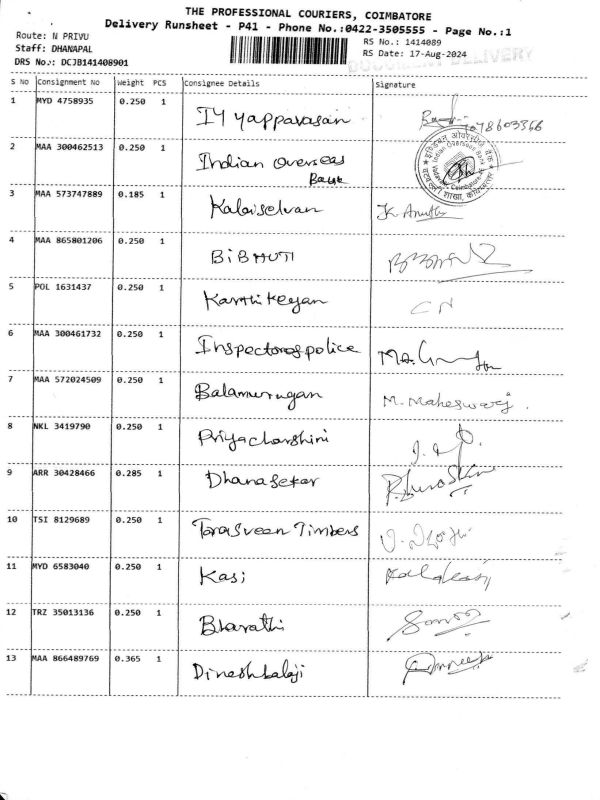 THE PROFESSIONAL COURIERS, COIMBATORE
Delivery Runsheet - P41 - Phone No.:0422-3505555 - Page No.:1
Route: N PRIVU
RS No.: 1414089
Staff: DHANAPAL
RS Date: 17-Aug-2024
DRS No.: DCJB141408901
DOCUMENT DELIVERY
S No Consignment No Weight PCS Consignee Details Signature
1 MYD 4758935 0.250 1 IYyappavasan
2 MAA 300462513 0.250 1 Indian overseas
Bank
Indian Overseas Bank
3 MAA 573747889 0.185 1 Kalaiselvan
4 MAA 865801206 0.250 1 BIBHUTI
5 POL 1631437 0.250 1 Karthikeyan CN
6 MAA 300461732 0.250 1 Inspector of police
7 MAA 572024509 0.250 1 Balamurugan M. Maheswari.
8 NKL 3419790 0.250 1 Priyadharshini
9 ARR 30428466 0.285 1 Dhanasekar
10 TSI 8129689 0.250 1 Timbers
11 MYD 6583040 0.250 1 Kasi
12 TRZ 35013136 0.250 1 Bharathi
13 MAA 866489769 0.365 1 Dineshbalaji